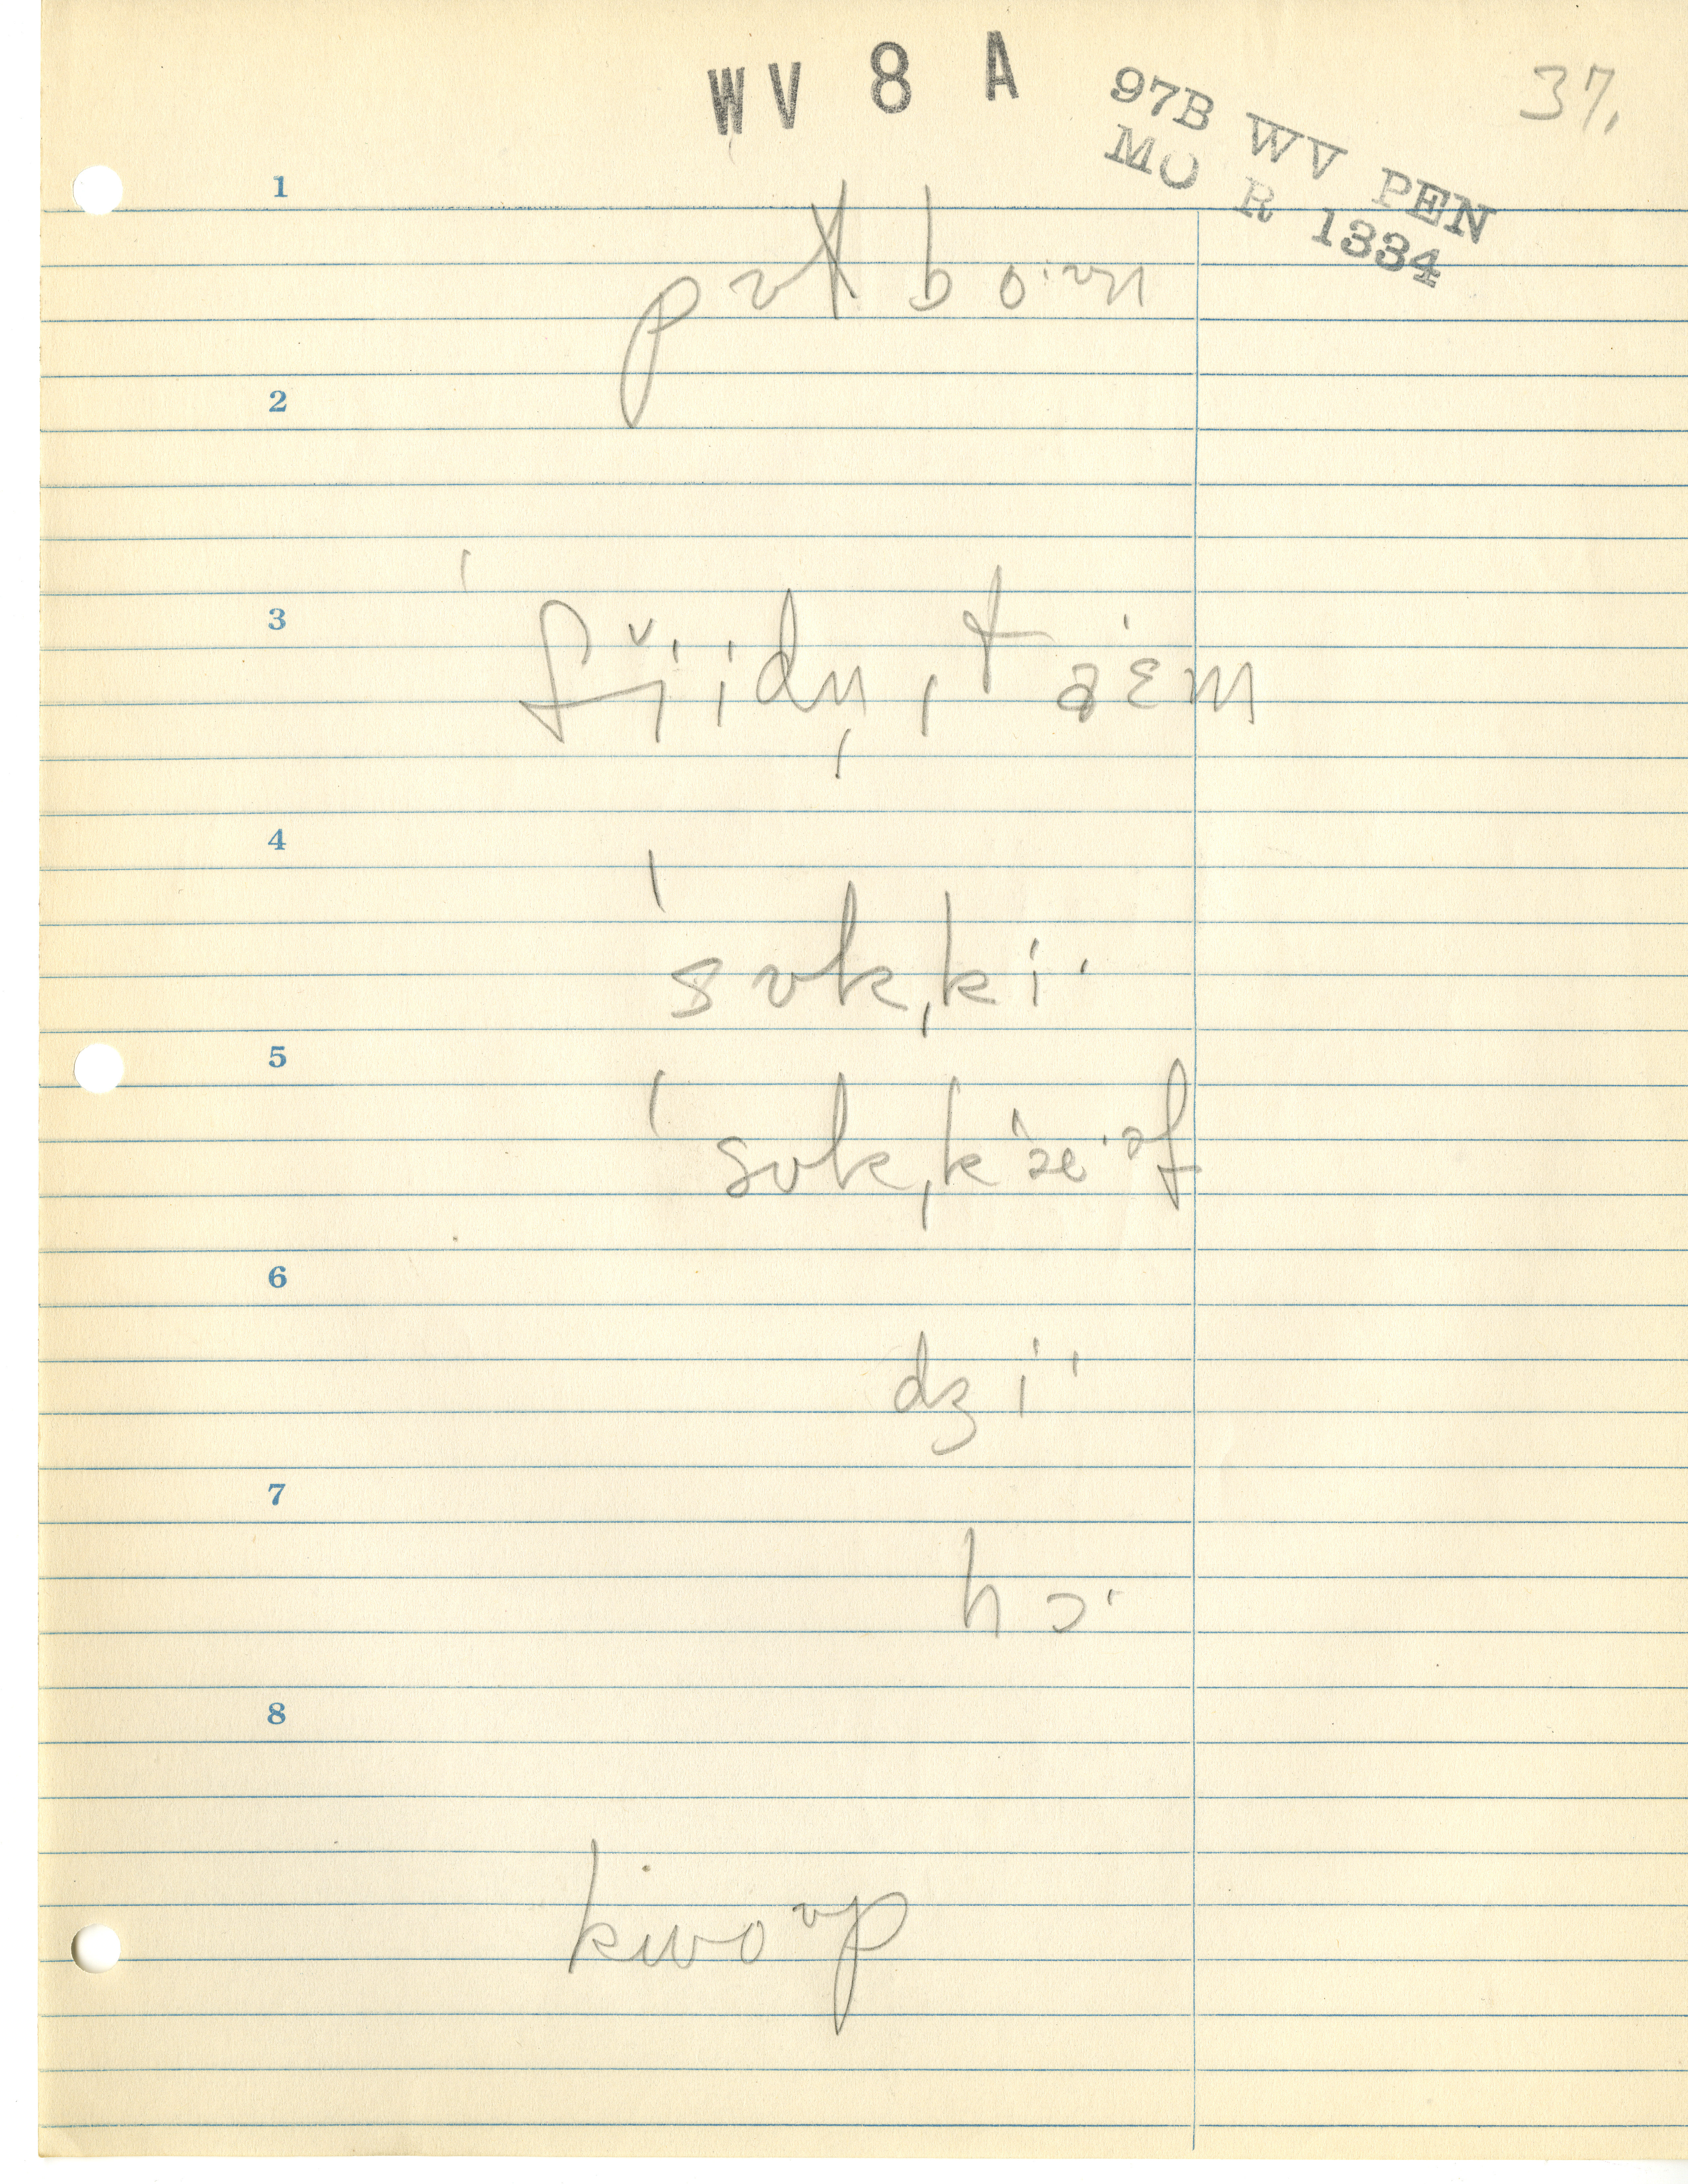 WV 8 A
97B WV PEN
MO R 1334
37.
1
pʊt boˑʊn
2
3
ˈfĭˑidn̩ˌtaˑɛm
4
ˈsʊkˌkiˑ
5
ˈsʊkˌkæˑəf
6
dʒiˑ
7
hɔˑ
8
kwoʊp